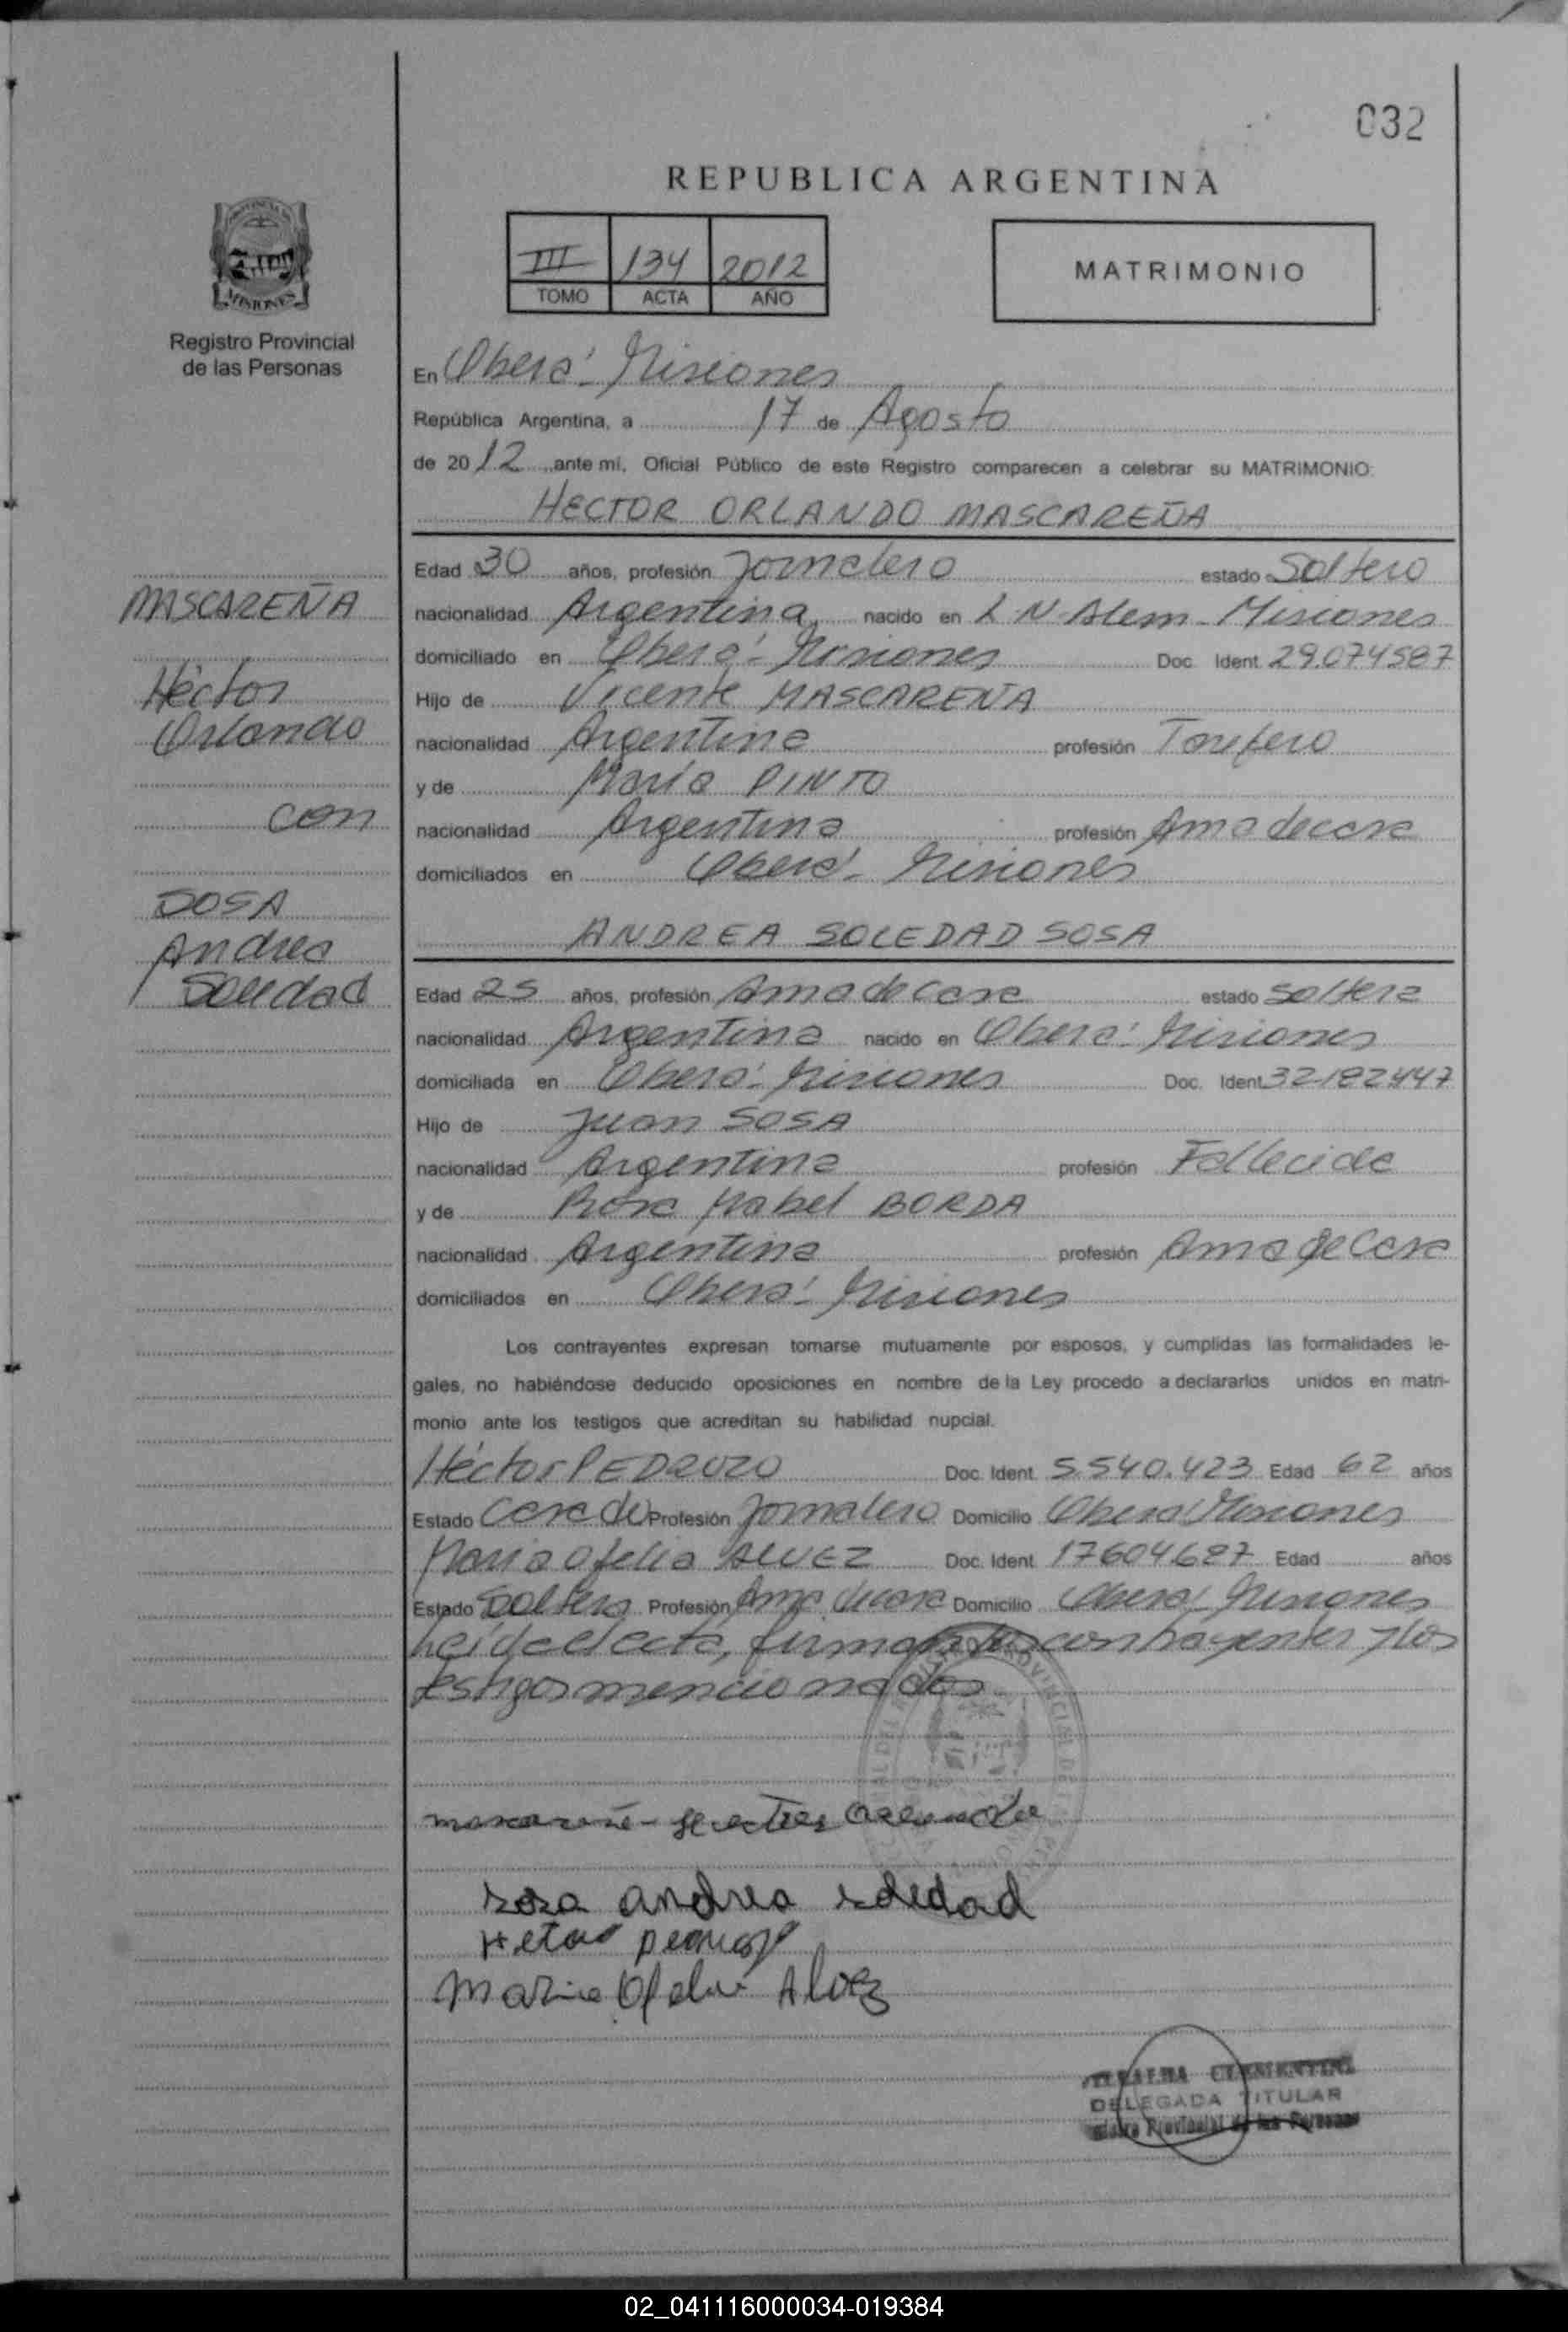 032
REPUBLICA ARGENTINA
III 134 2012
TOMO ACTA AÑO
MATRIMONIO
MISIONES
Registro Provincial
de las Personas
En Oberá - Misiones
República Argentina, a 17 de Agosto
de 2012 ante mi, Oficial Público de este Registro comparecen a celebrar su MATRIMONIO:
HECTOR ORLANDO MASCAREÑA
MASCAREÑA
Héctor
Orlando
con
SOSA
Andrea
Soledad
Edad 30 años, profesión Jornalero estado Soltero
nacionalidad Argentina nacido en L. N. Alem - Misiones
domiciliado en Oberá - Misiones Doc. Ident. 29.074587
Hijo de Vicente MASCAREÑA
nacionalidad Argentina profesión Tarefero
y de María PINTO
nacionalidad Argentina profesión Ama de casa
domiciliados en Oberá - Misiones
ANDREA SOLEDAD SOSA
Edad 25 años, profesión Ama de Casa estado Soltera
nacionalidad Argentina nacido en Oberá - Misiones
domiciliada en Oberá - Misiones Doc. Ident. 32182447
Hijo de Juan SOSA
nacionalidad Argentina profesión Fallecido
y de Rosa Mabel BORDA
nacionalidad Argentina profesión Ama de Casa
domiciliados en Oberá - Misiones
Los contrayentes expresan tomarse mutuamente por esposos, y cumplidas las formalidades le-
gales, no habiéndose deducido oposiciones en nombre de la Ley procedo a declararlos unidos en matri-
monio ante los testigos que acreditan su habilidad nupcial.
Héctor PEDROZO Doc. Ident. 5.540.423 Edad 62 años
Estado Casado Profesión Jornalero Domicilio Oberá Misiones
María Ofelia ALVEZ Doc. Ident. 17604627 Edad años
Estado Soltera Profesión Ama de casa Domicilio Oberá - Misiones
Leída el acta, firman los contrayentes y los
testigos mencionados
mascareñ - Hector Orlando
sosa andrea soledad
Hetor pedrozo
Maria Ofelia Alvez
DELEGADA TITULAR
Provincial de las Personas
02_041116000034-019384